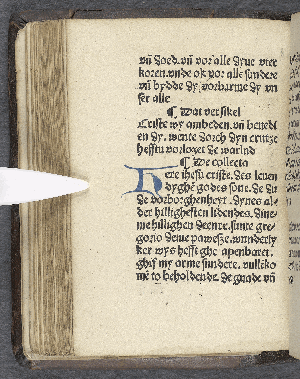 vñ doed. vñ vor alle dyne vter
koren. vnde ok vor alle sundere
vñ bydde dy vorbarme dy vn
ser alle
¶ Dat versikel
Criste wy anbeden. vñ benedi
en dy. wente dorch dyn crutze
heffstu vorloset de werlnd
¶ De collecta
Here ihesu criste. des leuen
dyghē godes sone. de du
de vorborghenheyt. dynes al
der hillighesten lidendes. dine
me hillighen denre. sunte gre
gorio deme pawesze. wunderly
ker wys heffst ghe apenbaret.
ghiff my arme sundere. vullēko
me to beholdende. de gnade vñ